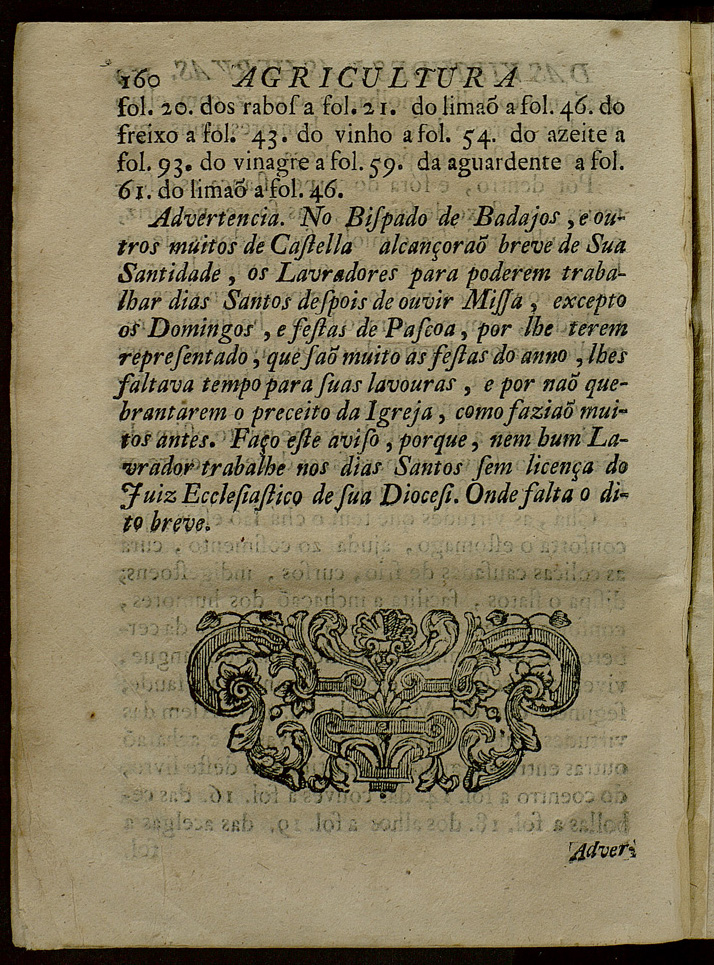 160 AGRICULTURA
fol. 20. dos rabos a fol. 21. do limaõ a fol. 46. do
freixo a fol. 43. do vinho a fol. 54. do azeite a
fol. 93. do vinagre a fol. 59. da aguardente a fol.
61. do limaõ a fol. 46.
Advertencia. No Biſpado de Badajos, e ou-
tros muitos de Caſtella alcançoraõ breve de Sua
Santidade, os Lavradores para poderem traba-
lhar dias Santos deſpois de ouvir Miſſa, excepto
os Domingos, e feſtas de Paſcoa, por lhe terem
repreſentado, que ſaõ muito as feſtas do anno, lhes
faltava tempo para ſuas lavouras, e por naõ que-
brantarem o preceito da Igreja, como faziaõ mui-
tos antes. Faço eſte aviſo, porque, nem hum La-
vrador trabalhe nos dias Santos ſem licença do
Juiz Eccleſiaſtico de ſua Dioceſi. Onde falta o di-
to breve.
Adver-